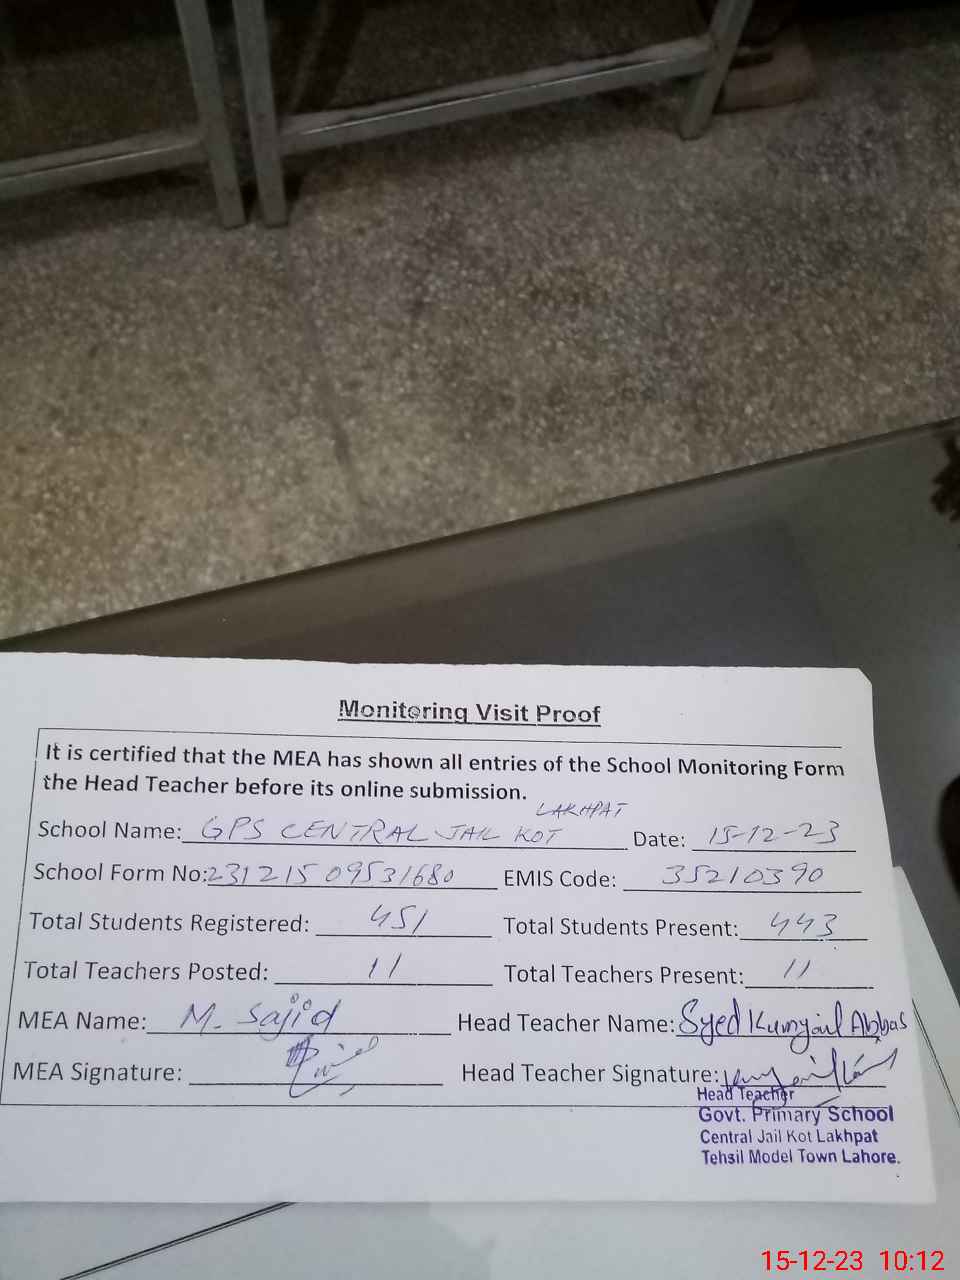 Monitoring Visit Proof
It is certified that the MEA has shown all entries of the School Monitoring Form
the Head Teacher before its online submission.
School Name: GPS CENTRAL JAIL KOT LAKHPAT Date: 15-12-23
School Form No: 23121509531680 EMIS Code: 35210390
Total Students Registered: 451 Total Students Present: 443
Total Teachers Posted: 11 Total Teachers Present: 11
MEA Name: M. Sajid Head Teacher Name: Syed Kumyail Abbas
MEA Signature: Head Teacher Signature:
Head Teacher
Govt. Primary School
Central Jail Kot Lakhpat
Tehsil Model Town Lahore.
15-12-23 10:12